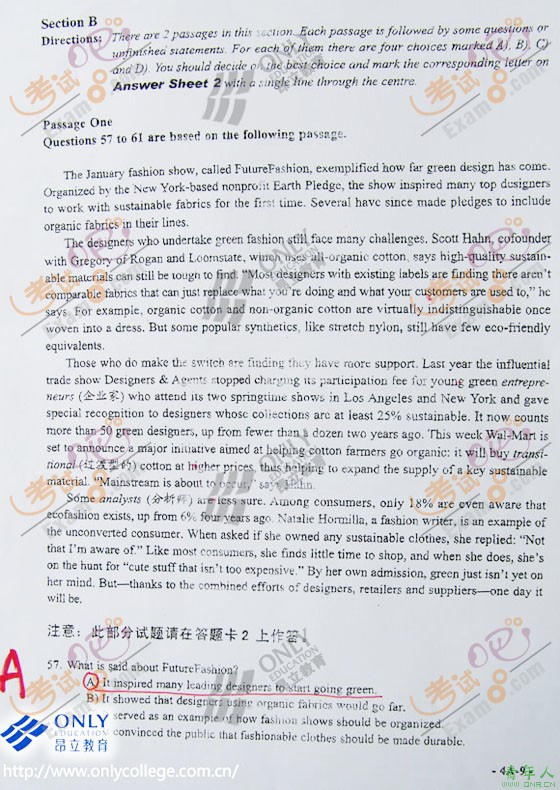 Section B
Directions: There are 2 passages in this section. Each passage is followed by some questions or
unfinished statements. For each of them there are four choices marked A), B), C)
and D). You should decide on the best choice and mark the corresponding letter on
Answer Sheet 2 with a single line through the centre.
Passage One
Questions 57 to 61 are based on the following passage.
The January fashion show, called FutureFashion, exemplified how far green design has come.
Organized by the New York-based nonprofit Earth Pledge, the show inspired many top designers
to work with sustainable fabrics for the first time. Several have since made pledges to include
organic fabrics in their lines.
The designers who undertake green fashion still face many challenges. Scott Hahn, cofounder
with Gregory of Rogan and Loomstate, which uses all-organic cotton, says high-quality sustain-
able materials can still be tough to find. "Most designers with existing labels are finding there aren't
comparable fabrics that can just replace what you're doing and what your customers are used to," he
says. For example, organic cotton and non-organic cotton are virtually indistinguishable once
woven into a dress. But some popular synthetics, like stretch nylon, still have few eco-friendly
equivalents.
Those who do make the switch are finding they have more support. Last year the influential
trade show Designers & Agents stopped charging its participation fee for young green entrepre-
neurs (企业家) who attend its two springtime shows in Los Angeles and New York and gave
special recognition to designers whose collections are at least 25% sustainable. It now counts
more than 50 green designers, up from fewer than a dozen two years ago. This week Wal-Mart is
set to announce a major initiative aimed at helping cotton farmers go organic: it will buy transi-
tional (过渡型的) cotton at higher prices, thus helping to expand the supply of a key sustainable
material. "Mainstream is about to occur," says Hahn.
Some analysts (分析师) are less sure. Among consumers, only 18% are even aware that
ecofashion exists, up from 6% four years ago. Natalie Hormilla, a fashion writer, is an example of
the unconverted consumer. When asked if she owned any sustainable clothes, she replied: "Not
that I'm aware of." Like most consumers, she finds little time to shop, and when she does, she's
on the hunt for "cute stuff that isn't too expensive." By her own admission, green just isn't yet on
her mind. But—thanks to the combined efforts of designers, retailers and suppliers—one day it
will be.
注意: 此部分试题请在答题卡 2 上作答。
57. What is said about FutureFashion?
A
A) It inspired many leading designers to start going green.
B) It showed that designers using organic fabrics would go far.
served as an example of how fashion shows should be organized.
convinced the public that fashionable clothes should be made durable.
ONLY
EDUCATION
昂立教育
http://www.onlycollege.com.cn/
青年人